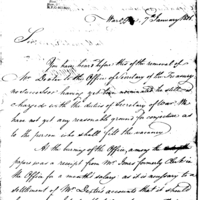 War Office 7 January 1801
Sir,
You have heard before this of the removal of
Mr Dexter to the Office of Secretary of the Treasury
no successor having yet been nominated he still
charged with the duties of Secretary of War. We
have not yet any reasonable ground for conjecture as
to the person who shall fill the vacancy
At the burning of the Office, among the
papers was a receipt from Mr Jones formerly Clerk in
the Office for a months salary as it is necessary to a
settlement of Mr Dexter's accounts that it should